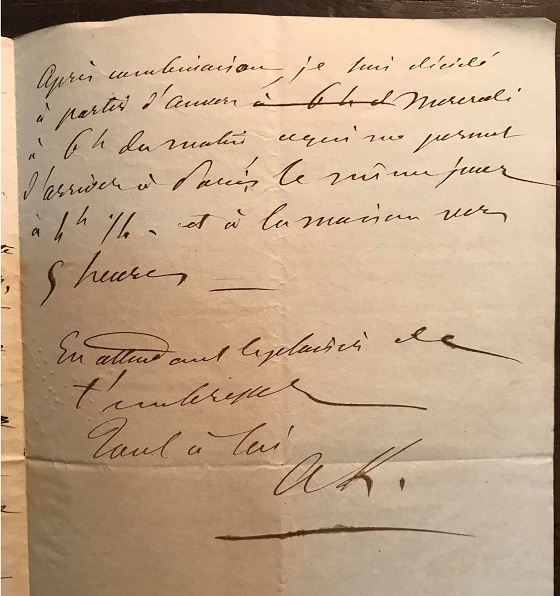 Après combinaison, je suis décidé
à partir d'Anvers à 6 h d Mercredi
à 6 h du matin ce qui me permet
d'arriver à Paris le même jour
à 4 h 1/4 - et à la maison vers
5 heures —
En attendant le plaisir de
t'embrasser
Tout à toi
AK.